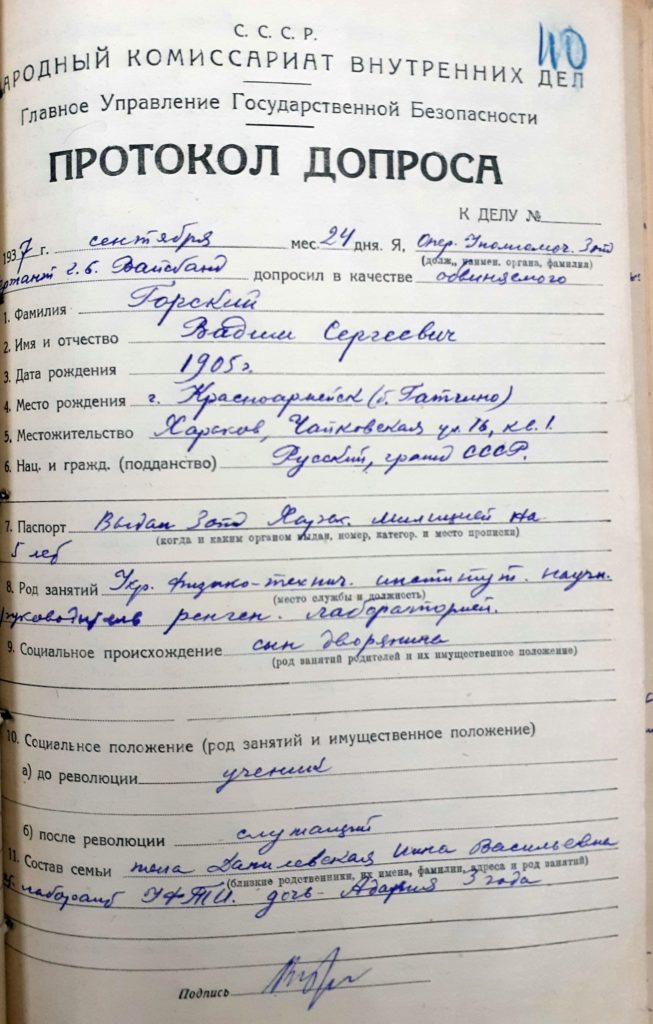 110
С. С. С. Р.
АРОДНЫЙ КОМИССАРИАТ ВНУТРЕННИХ ДЕЛ
Главное Управление Государственной Безопасности
ПРОТОКОЛ ДОПРОСА
К ДЕЛУ №
1937 г. сентября мес. 24 дня. Я, Опер. Уполномоч. 3 отд
(долж., наимен. органа, фамилия)
г. б. Вайсбанд допросил в качестве обвиняемого
1. Фамилия Горский
2. Имя и отчество Вадим Сергеевич
3. Дата рождения 1905 г.
4. Место рождения г. Красноармейск (б. Гатчино)
5. Местожительство Харьков, Чайковская ул. 16, кв. 1.
6. Нац. и гражд. (подданство) Русский, гражд СССР.
7. Паспорт Выдан 3 отд Харьк. милицией на
(когда и каким органом выдан, номер, категор. и место прописки)
5 лет
8. Род занятий Укр. физико-технич. институт. научн.
(место службы и должность)
руководитель рентген. лабораторией.
9. Социальное происхождение сын дворянина
(род занятий родителей и их имущественное положение)
10. Социальное положение (род занятий и имущественное положение)
а) до революции ученик
б) после революции служащий
11. Состав семьи жена Данилевская Нина Васильевна
(близкие родственники, их имена, фамилии, адреса и род занятий)
лаборант УФТИ. дочь 3 года
Подпись